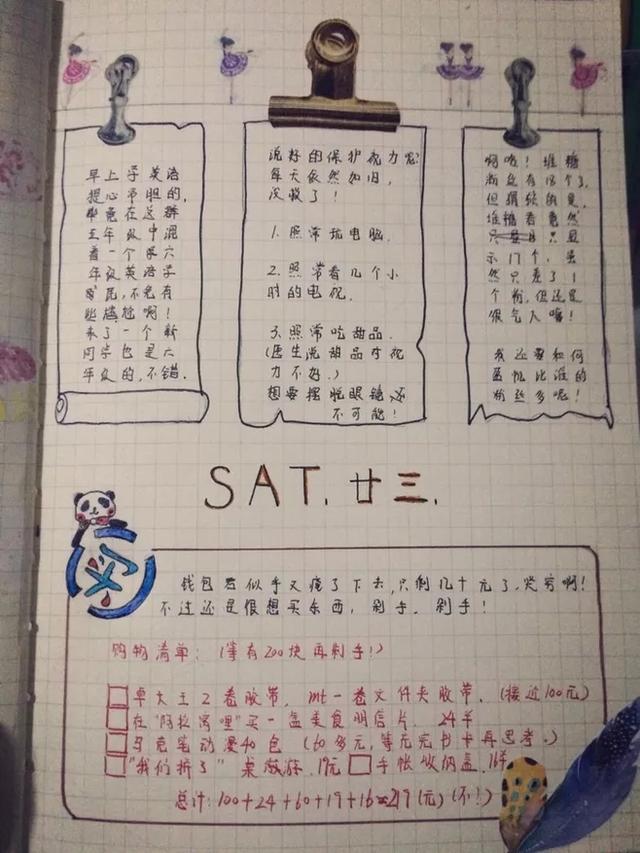 早上学英语
提心吊胆的,
毕竟在这群
五年级中混
着一个准六
年级英语学
渣,不免有
些尴尬啊!
来了一个新
同学也是六
年级的,不错.
说好的保护视力呢?
每天依然如旧,
没救了!
1. 照常玩电脑.
2. 照常看几个小
时的电视.
3. 照常吃甜品.
(医生说甜品对视
力不好.)
想要摆脱眼镜还
不可能!
啊啊! 堆糖
粉丝有18个了,
但猬软的是,
堆糖看竟然
只显
示17个, 虽
然只差了1
个粉,但还是
很气人嘛!
我还要和何
孟帆比谁的
粉丝多呢!
SAT. 廿三.
穷
钱包君似乎又瘦了下去,只剩几十元了,哭穷啊!
不过还是很想买东西, 剁手, 剁手!
购物清单: (等有200块再剁手!)
卓大王2卷胶带, mt一卷文件夹胶带. (接近100元)
在"阿拉湾哩"买一盒美食明信片. 24羊
马克笔动漫40色 (60多元,等元元书卡再思考.)
"我们拆了" 桌游 19元 手帐收纳盒.16羊
总计: 100+24+60+19+16≈219(元) (不!)